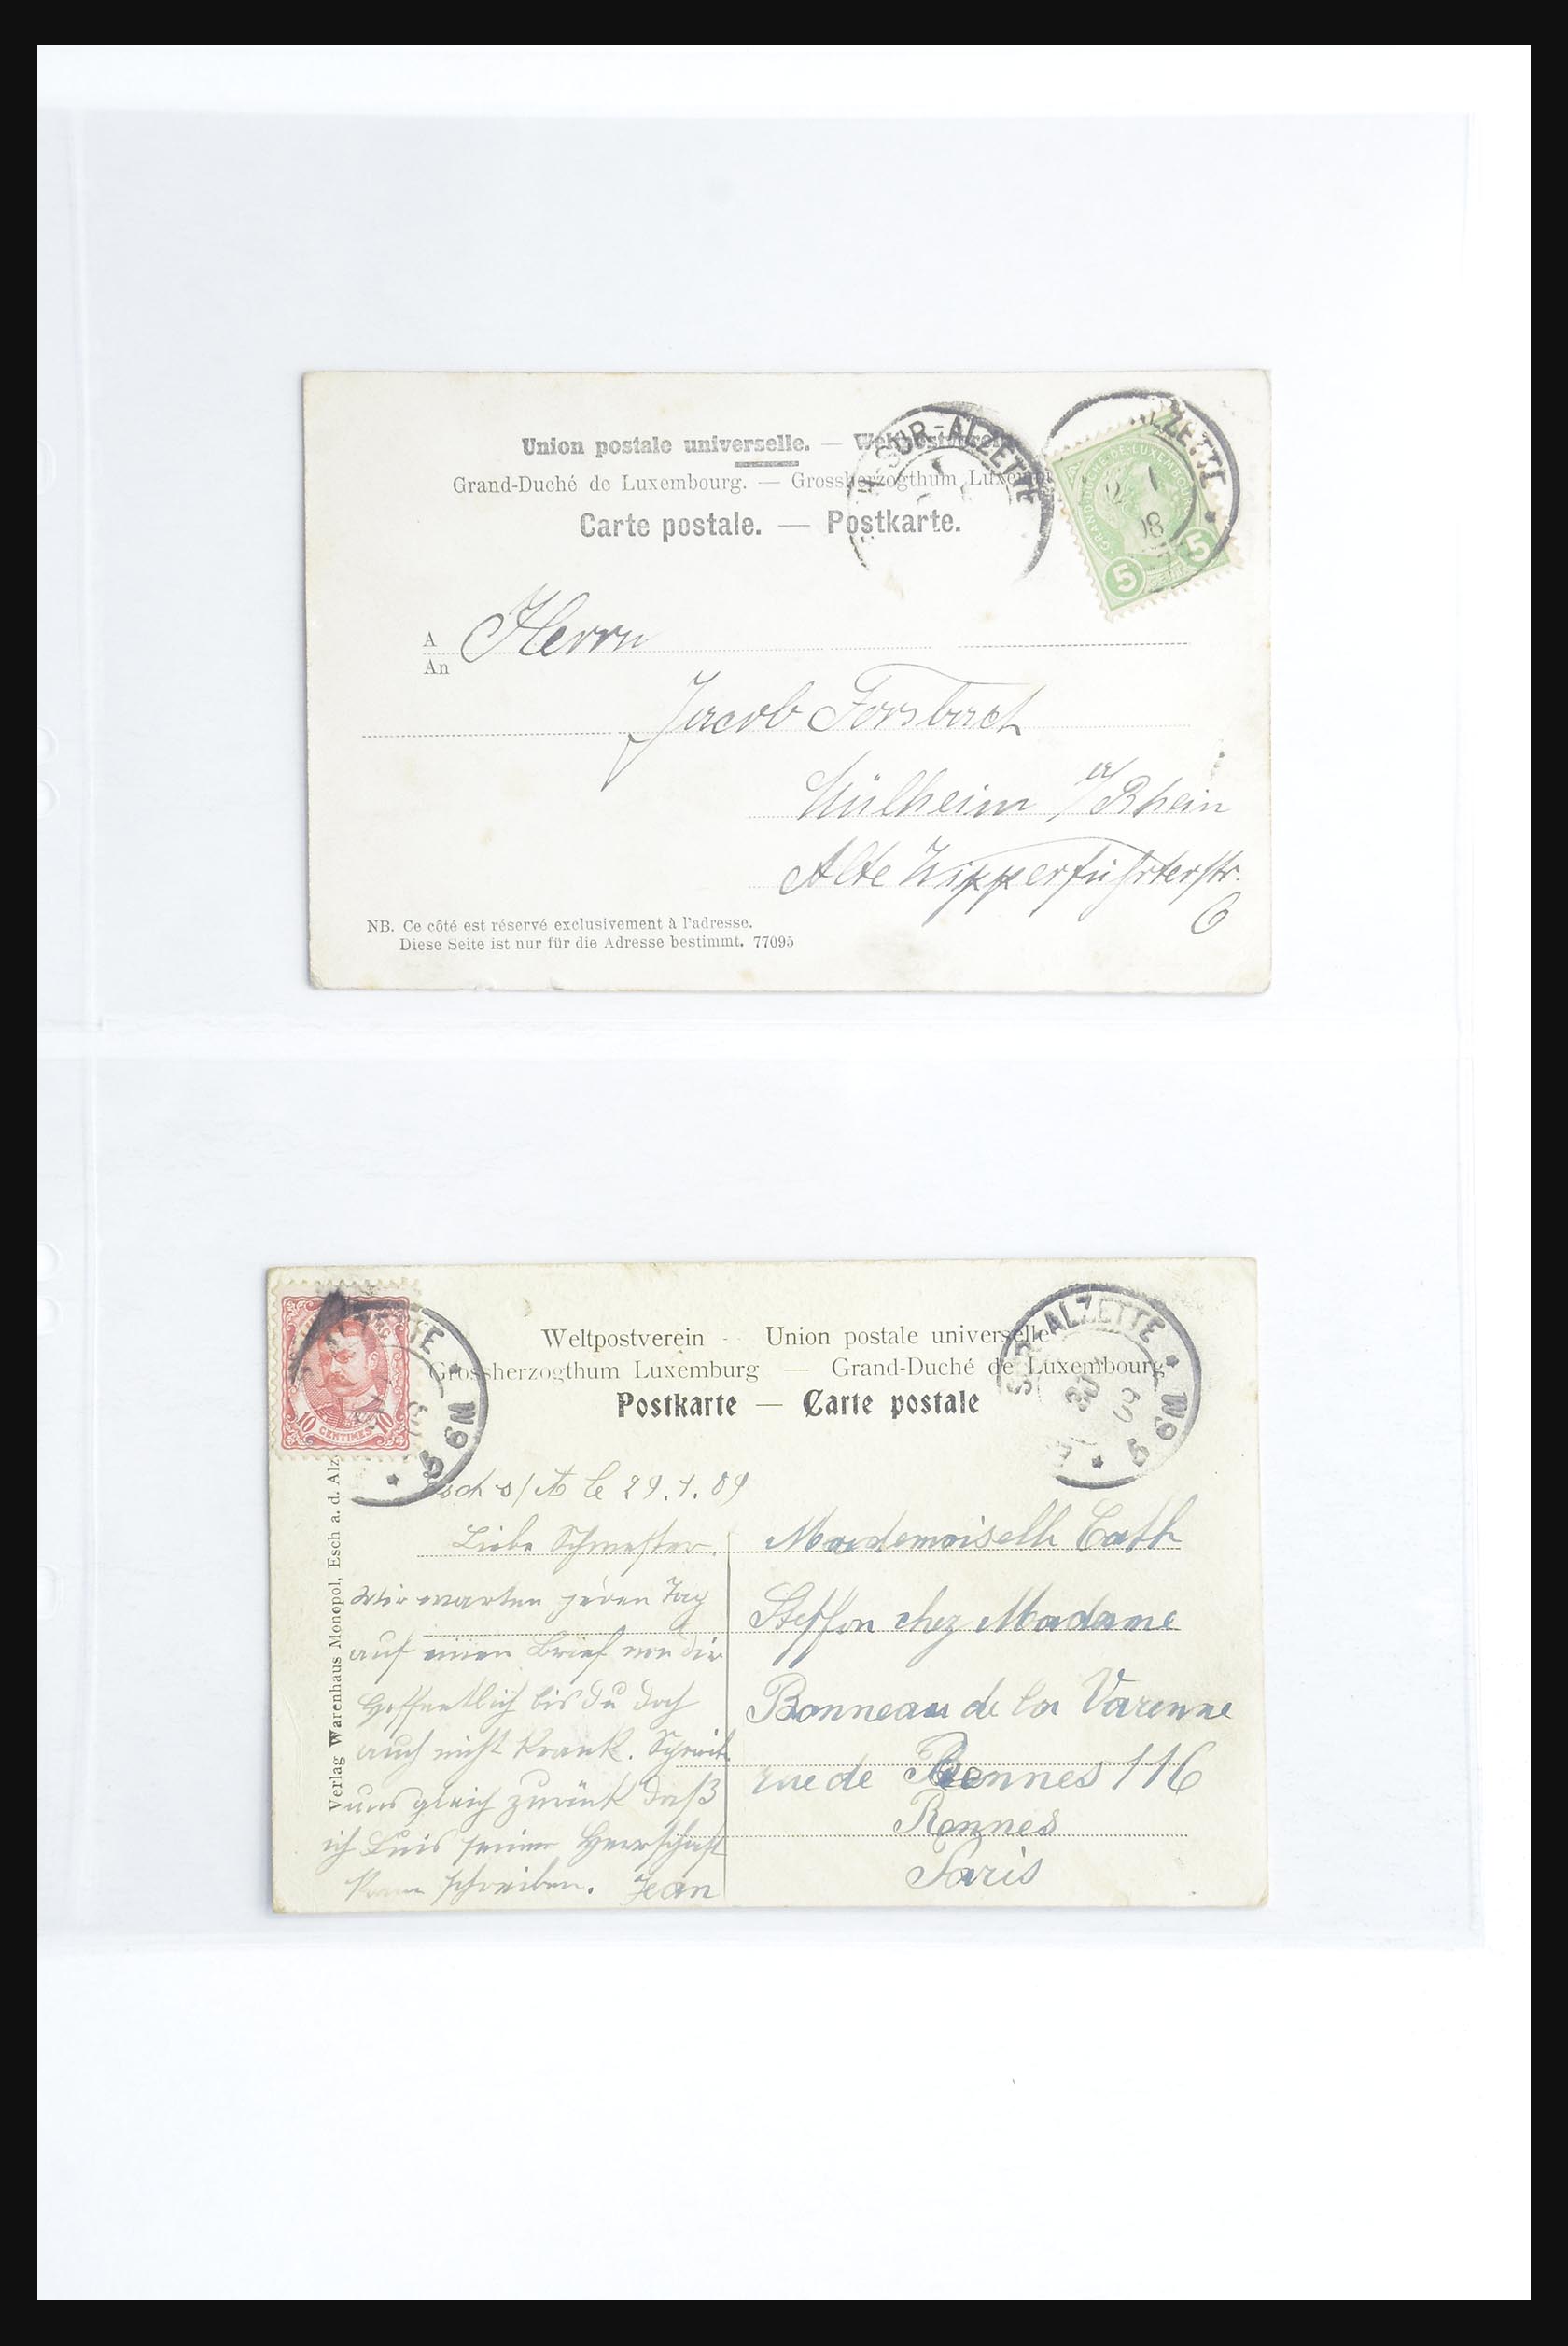 Union postale universelle. — Weltpostverein
Grand-Duché de Luxembourg. — Grossherzogthum Luxemburg
Carte postale. — Postkarte.
SUR-ALZETTE
ALZETTE
GRAND-DUCHÉ-DE-LUXEMBOURG
5 5
A Herrn
An
Jacob Forsbach
Mülheim a/Rhein
Alte Wipperführterstr.
6
NB. Ce côté est réservé exclusivement à l'adresse.
Diese Seite ist nur für die Adresse bestimmt. 77095
Weltpostverein - Union postale universelle
Grossherzogthum Luxemburg — Grand-Duché de Luxembourg
Postkarte — Carte postale
10 CENTIMES 10
SUR ALZETTE
Verlag Warenhaus Monopol, Esch a. d. Alz.
Esch s/A le 29.1.09
Liebe Schwester.
Wir warten jeden Tag
auf einen Brief von dir
Hoffentlich bis du doch
auch nicht krank. Schreib
uns gleich zurück daß
ich Luis seiner Herrschaft
kann schreiben. Jean
Mademoiselle Cath
Steffen chez Madame
Bonneau de la Varenne
rue de Rennes 116
Rennes
Paris